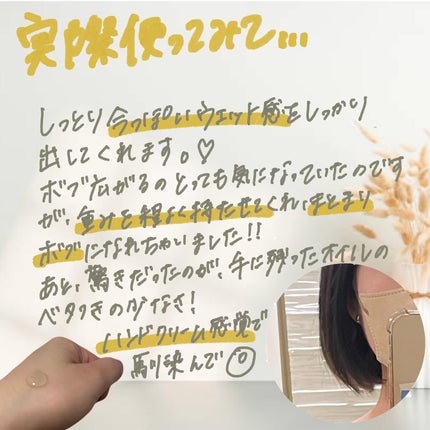 実際使ってみて...
しっとり今っぽいウェット感をしっかり
出してくれます。♡
ボブ広がるのとっても気になっていたのです
が、重みを程よく持たせてくれ、まとまり
ボブになれちゃいました!!
あと、驚きだったのが、手に残ったオイルの
ベタつきの少なさ!
ハンドクリーム感覚で
馴染んで◎